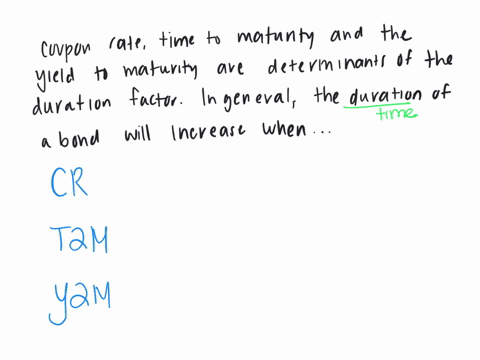 Coupon rate, time to maturity and the
yield to maturity are determinants of the
duration factor. In general, the duration of
time
a bond will increase when...
CR
T2M
Y2M